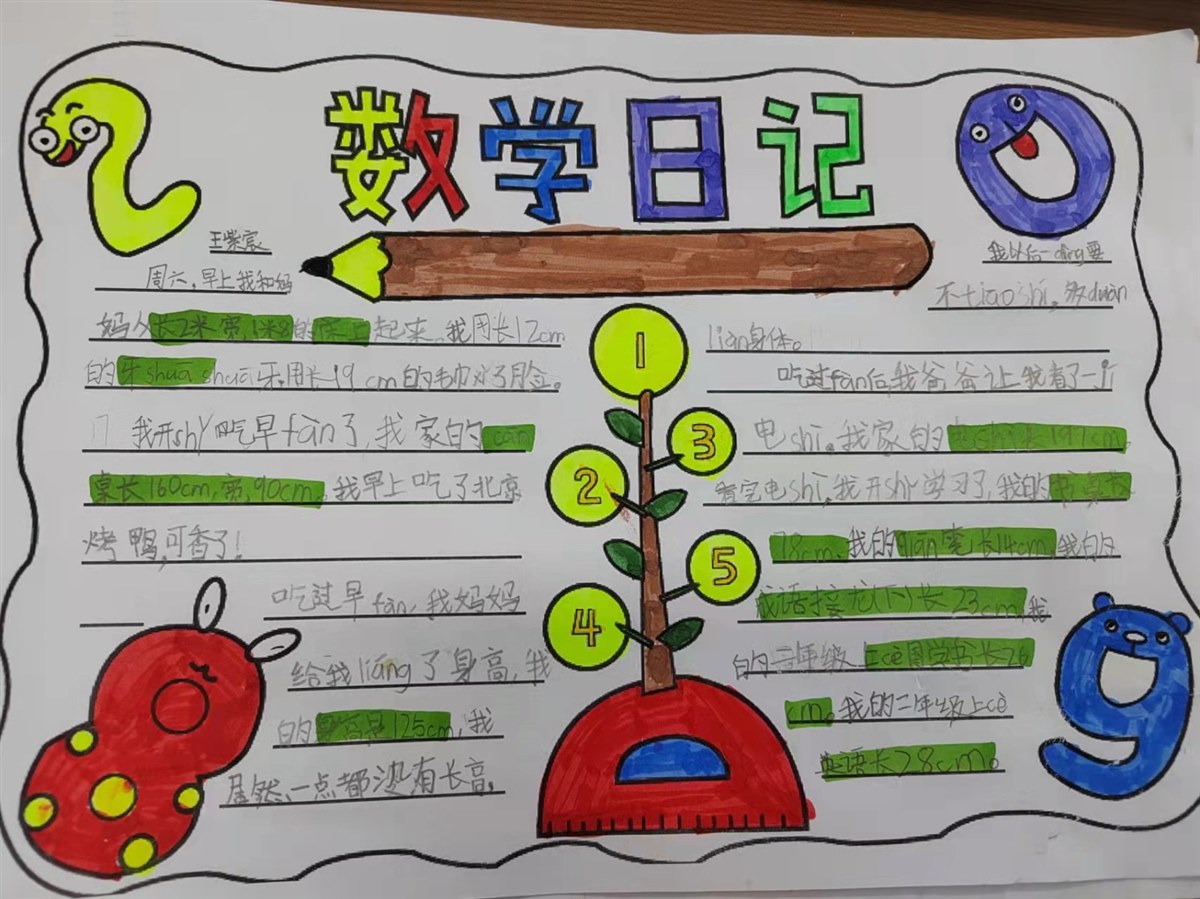 数学日记
王紫宸
周六,早上我和妈
妈从长2米宽,1米8的床上起来。我用长12cm
的牙shuā shuā牙,用长19cm的毛巾水了脸。
我开shǐ吃早fàn了,我家的cān
桌长160cm,宽,90cm。我早上吃了北京
烤鸭,可香了!
吃过早fàn,我妈妈
给我liáng了身高,我
的身高是125cm,我
居然一点都没有长高。
我以后一dìng要
不tiāo shí,多duàn
liàn身体。
吃过fàn后,我爸爸让我看了一
电shì。我家的电shì长197cm。
看完电shì,我开shǐ学习了,我的书桌长
78cm。我的qiān笔长14cm,我的
成语接龙(下)长23cm,我
的二年级上cè数学书长26
cm。我的二年级上cè
英语长28cm。
1
3
2
5
4